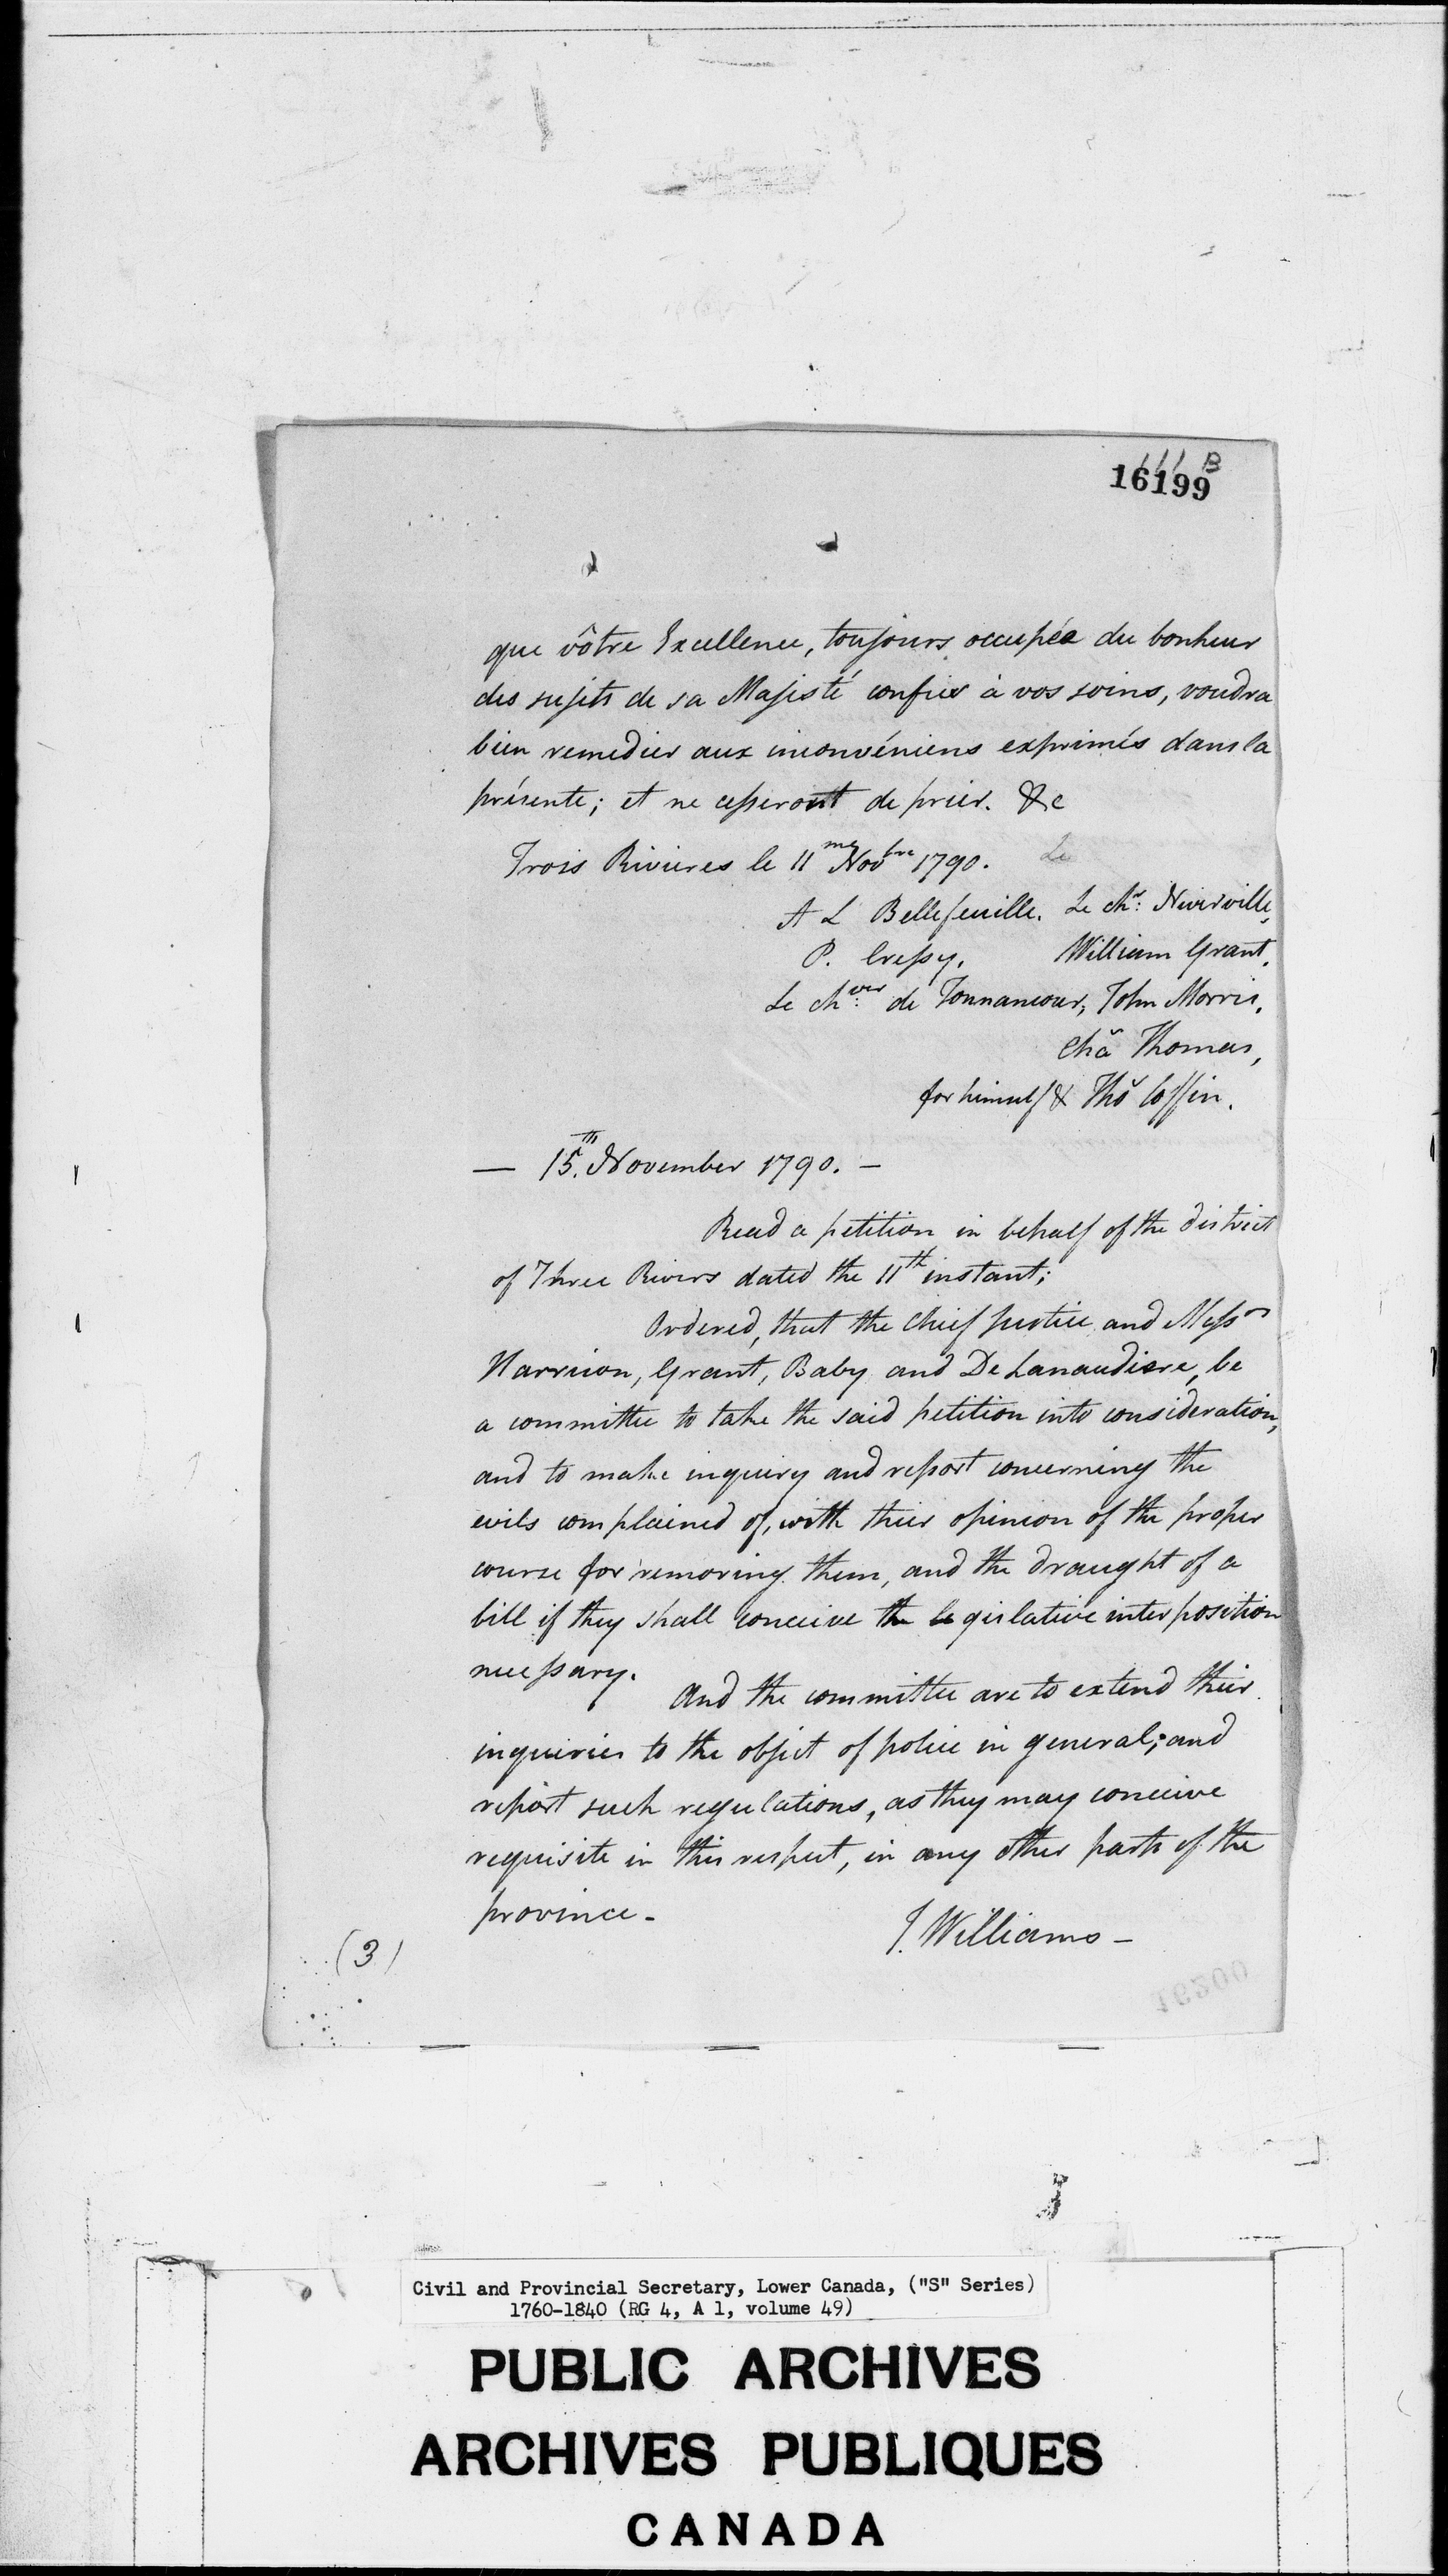 16199 B
que vôtre Excellence, toujours occupée du bonheur
des sujets de sa Majesté confiés à vos soins, voudra
bien remedier aux inconvéniens exprimés dans la
présente; et ne cesseront de prier. &c
Trois Rivieres le 11me Novbre 1790. Le
A L Bellefeuille. Le chr: Niverville,
P. Cressy. William Grant.
Le chver: de Tonnancour, John Morris,
Chã Thomas,
for himself & Thõ Coffin.
— 15th. November 1790. —
Read a petition in behalf of the district
of Three Rivers dated the 11th instant;
Ordered, that the Chief Justice and Messrs
Harrison, Grant, Baby and De Lanaudiere, be
a committee to take the said petition into consideration,
and to make inquiry and report concerning the
evils complained of, with their opinion of the proper
course for removing them, and the draught of a
bill if they shall conceive the legislative interposition
necessary.
And the committee are to extend their
inquiries to the object of police in general; and
report such regulations, as they may conceive
requisite in this respect, in any other parts of the
province.
J. Williams —
(3)
16200
Civil and Provincial Secretary, Lower Canada, ("S" Series)
1760-1840 (RG 4, A 1, volume 49)
PUBLIC ARCHIVES
ARCHIVES PUBLIQUES
CANADA